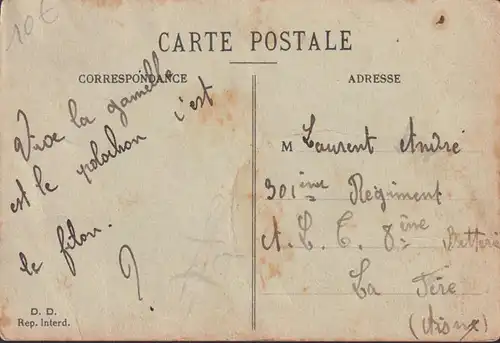 10€
CARTE POSTALE
CORRESPONDANCE
ADRESSE
Vive la gamelle
est le c'est
le filon.
M Laurent André
301ième Régiment
A. L. C. 8ème Batterie
La Fère
(Aisne)
D. D.
Rep. Interd.